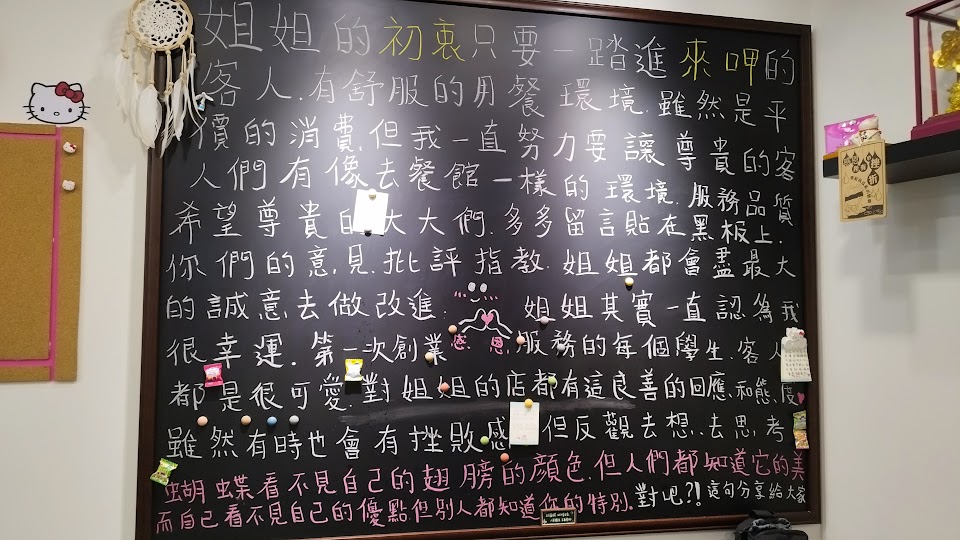 姐姐的初衷只要一踏進來呷的
客人.有舒服的用餐環境.雖然是平
價的消費.但我一直努力要讓尊貴的客
人們有像去餐館一樣的環境.服務品質
希望尊貴的大大們.多多留言貼在黑板上.
你們的意見.批評指教.姐姐都會盡最大
的誠意去做改進. 姐姐其實一直認為我
很幸運.第一次創業感恩.服務的每個學生.客人
都是很可愛.對姐姐的店都有這良善的回應.和態度
雖然有時也會有挫敗感 但反觀去想.去思考
蝴蝶看不見自己的翅膀的顏色.但人們都知道它的美
而自己看不見自己的優點但別人都知道你的特別.對吧?!這句分享給大家